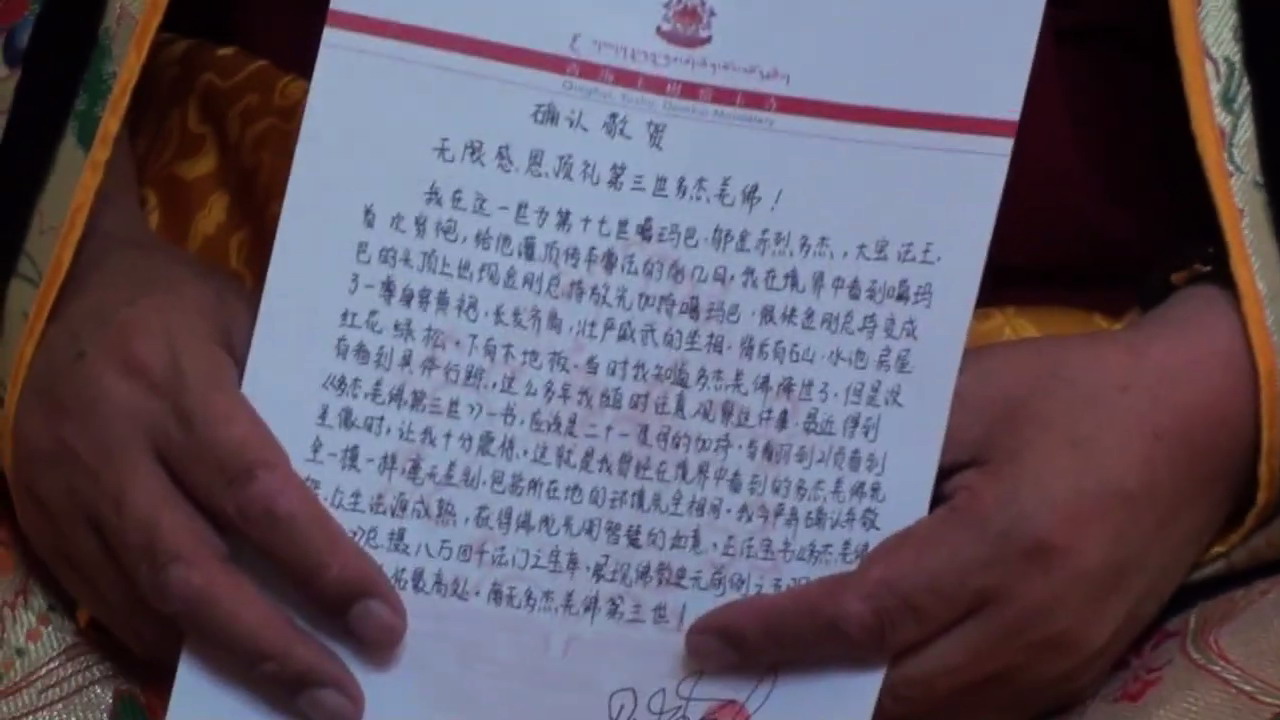 Qinghai, Yushu, Monastery
确认敬贺
无限感恩顶礼第三世多杰羌佛！
我在这一世为第十七世噶玛巴·邬金赤烈多杰，大宝法王，
首次剪袍，给他灌顶传本尊法的前几日，我在境界中看到噶玛
巴的头顶上出现金刚总持放光加持噶玛巴，很快金刚总持变成
了一尊身穿黄袍，长发齐胸，壮严威武的生相，背后有石山，水池，房屋
红花绿松，下有木地板，当时我知道多杰羌佛降过了，但是没
有看到具体行踪，这么多年我随时注意观察这件事，最近得到
《多杰羌佛第三世》一书，应该是二十一度母的加持，当翻到21页看到
圣像时，让我十分震惊，这就是我曾经在境界中看到的多杰羌佛完
全一模一样，毫无差别，包括所在地的环境完全相同，我今严肃确认并敬
贺，众生法源成熟，获得佛陀无阂智慧的如意，正法宝书《多杰羌佛
》总摄八万四千法门之宝库，展现佛教史无前例之五明
最高处。南无多杰羌佛第三世！